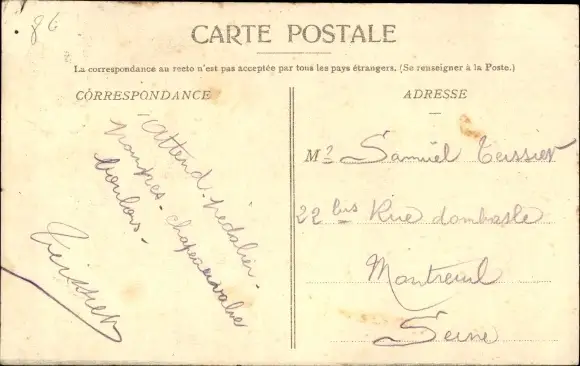 86
CARTE POSTALE
La correspondance au recto n'est pas acceptée par tous les pays étrangers. (Se renseigner à la Poste.)
CORRESPONDANCE
J'attend. Pédalier.
Pompes. chapeau valve
boulons.
Teissier
ADRESSE
Mr Samuel Teissier
22 bis Rue dombasle
Montreuil
Seine